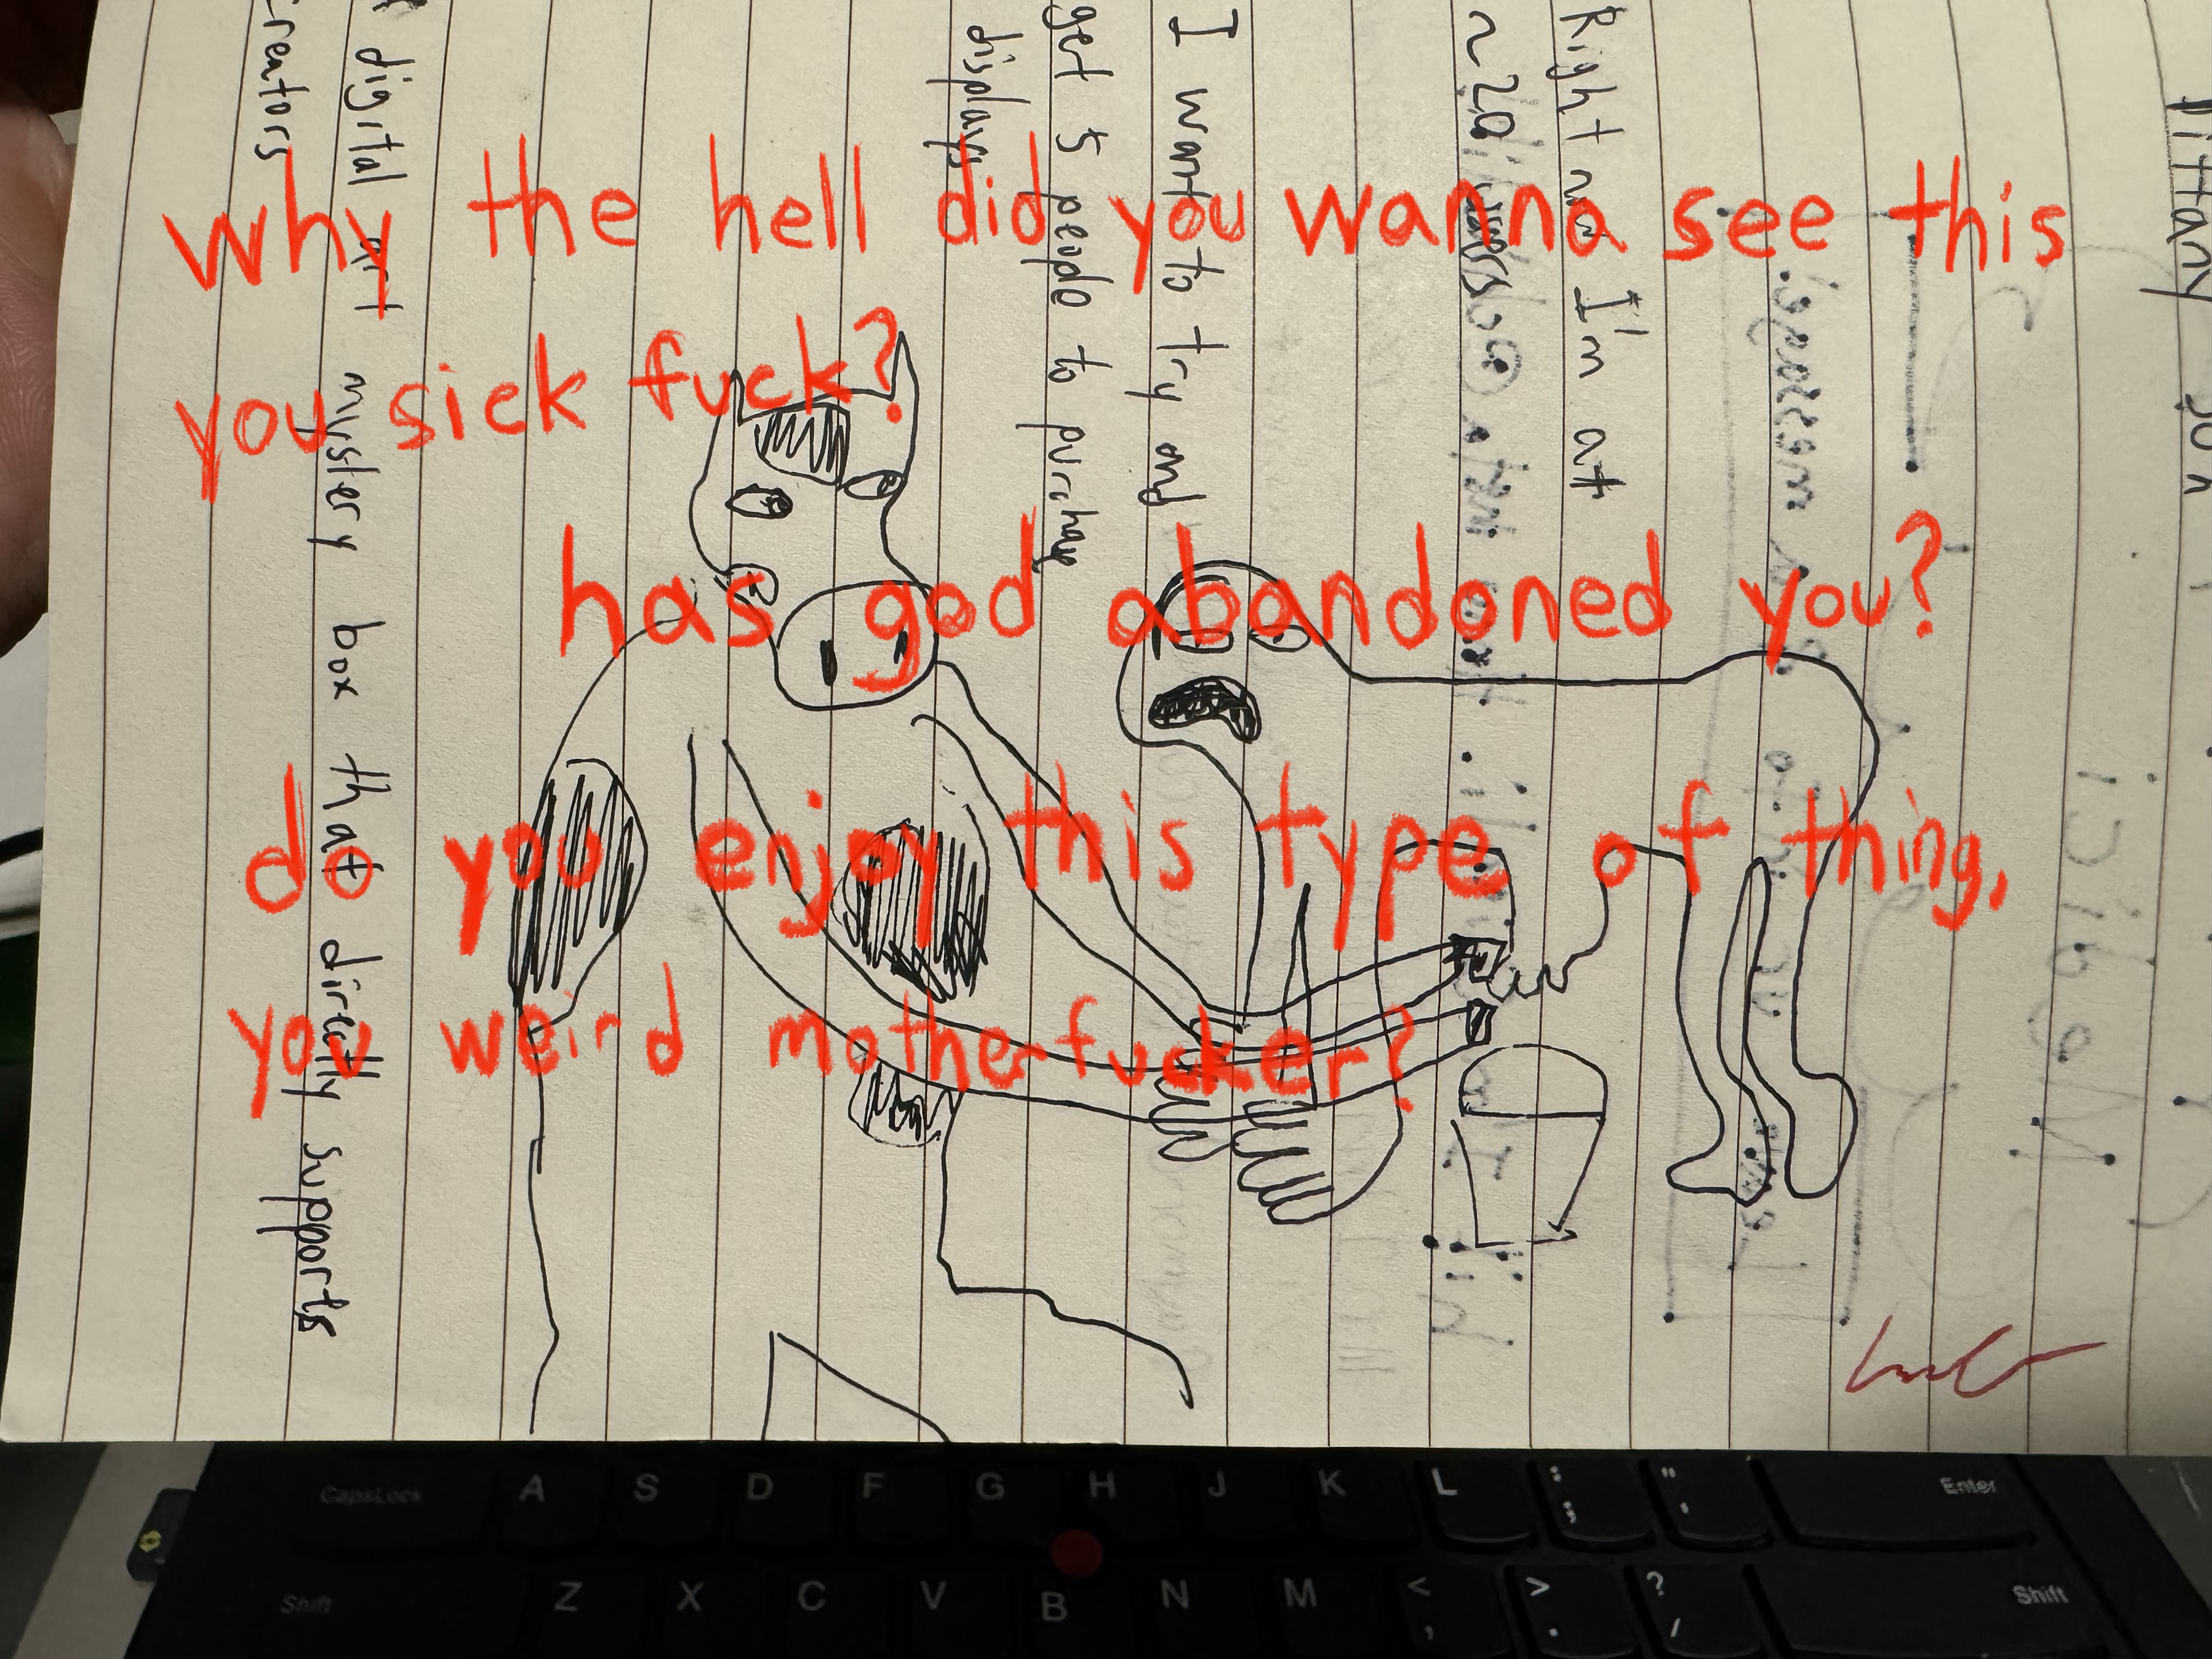 why the hell did you wanna see this
you sick fuck?
has god abandoned you?
do you enjoy this type of thing,
you weird motherfucker?
Right now I'm at
I want to try and
get 5 people to purchase
displays
digital art mystery box that directly supports
creators
CapsLock A S D F G H J K L : ; " ' Enter
Shift Z X C V B N M < , > . ? / Shift